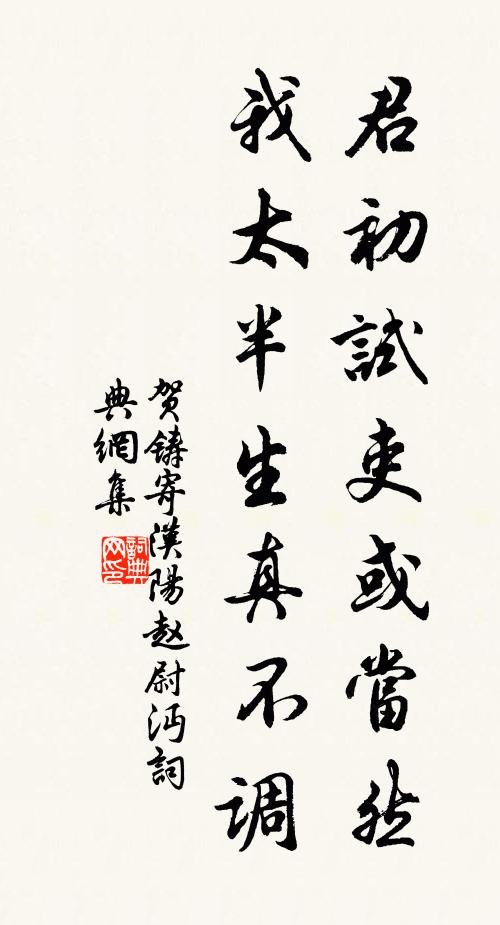 君初試吏或當然
我太半生真不调
贺鑄寄漢陽赵尉沔詞
典網集
詞典
网印